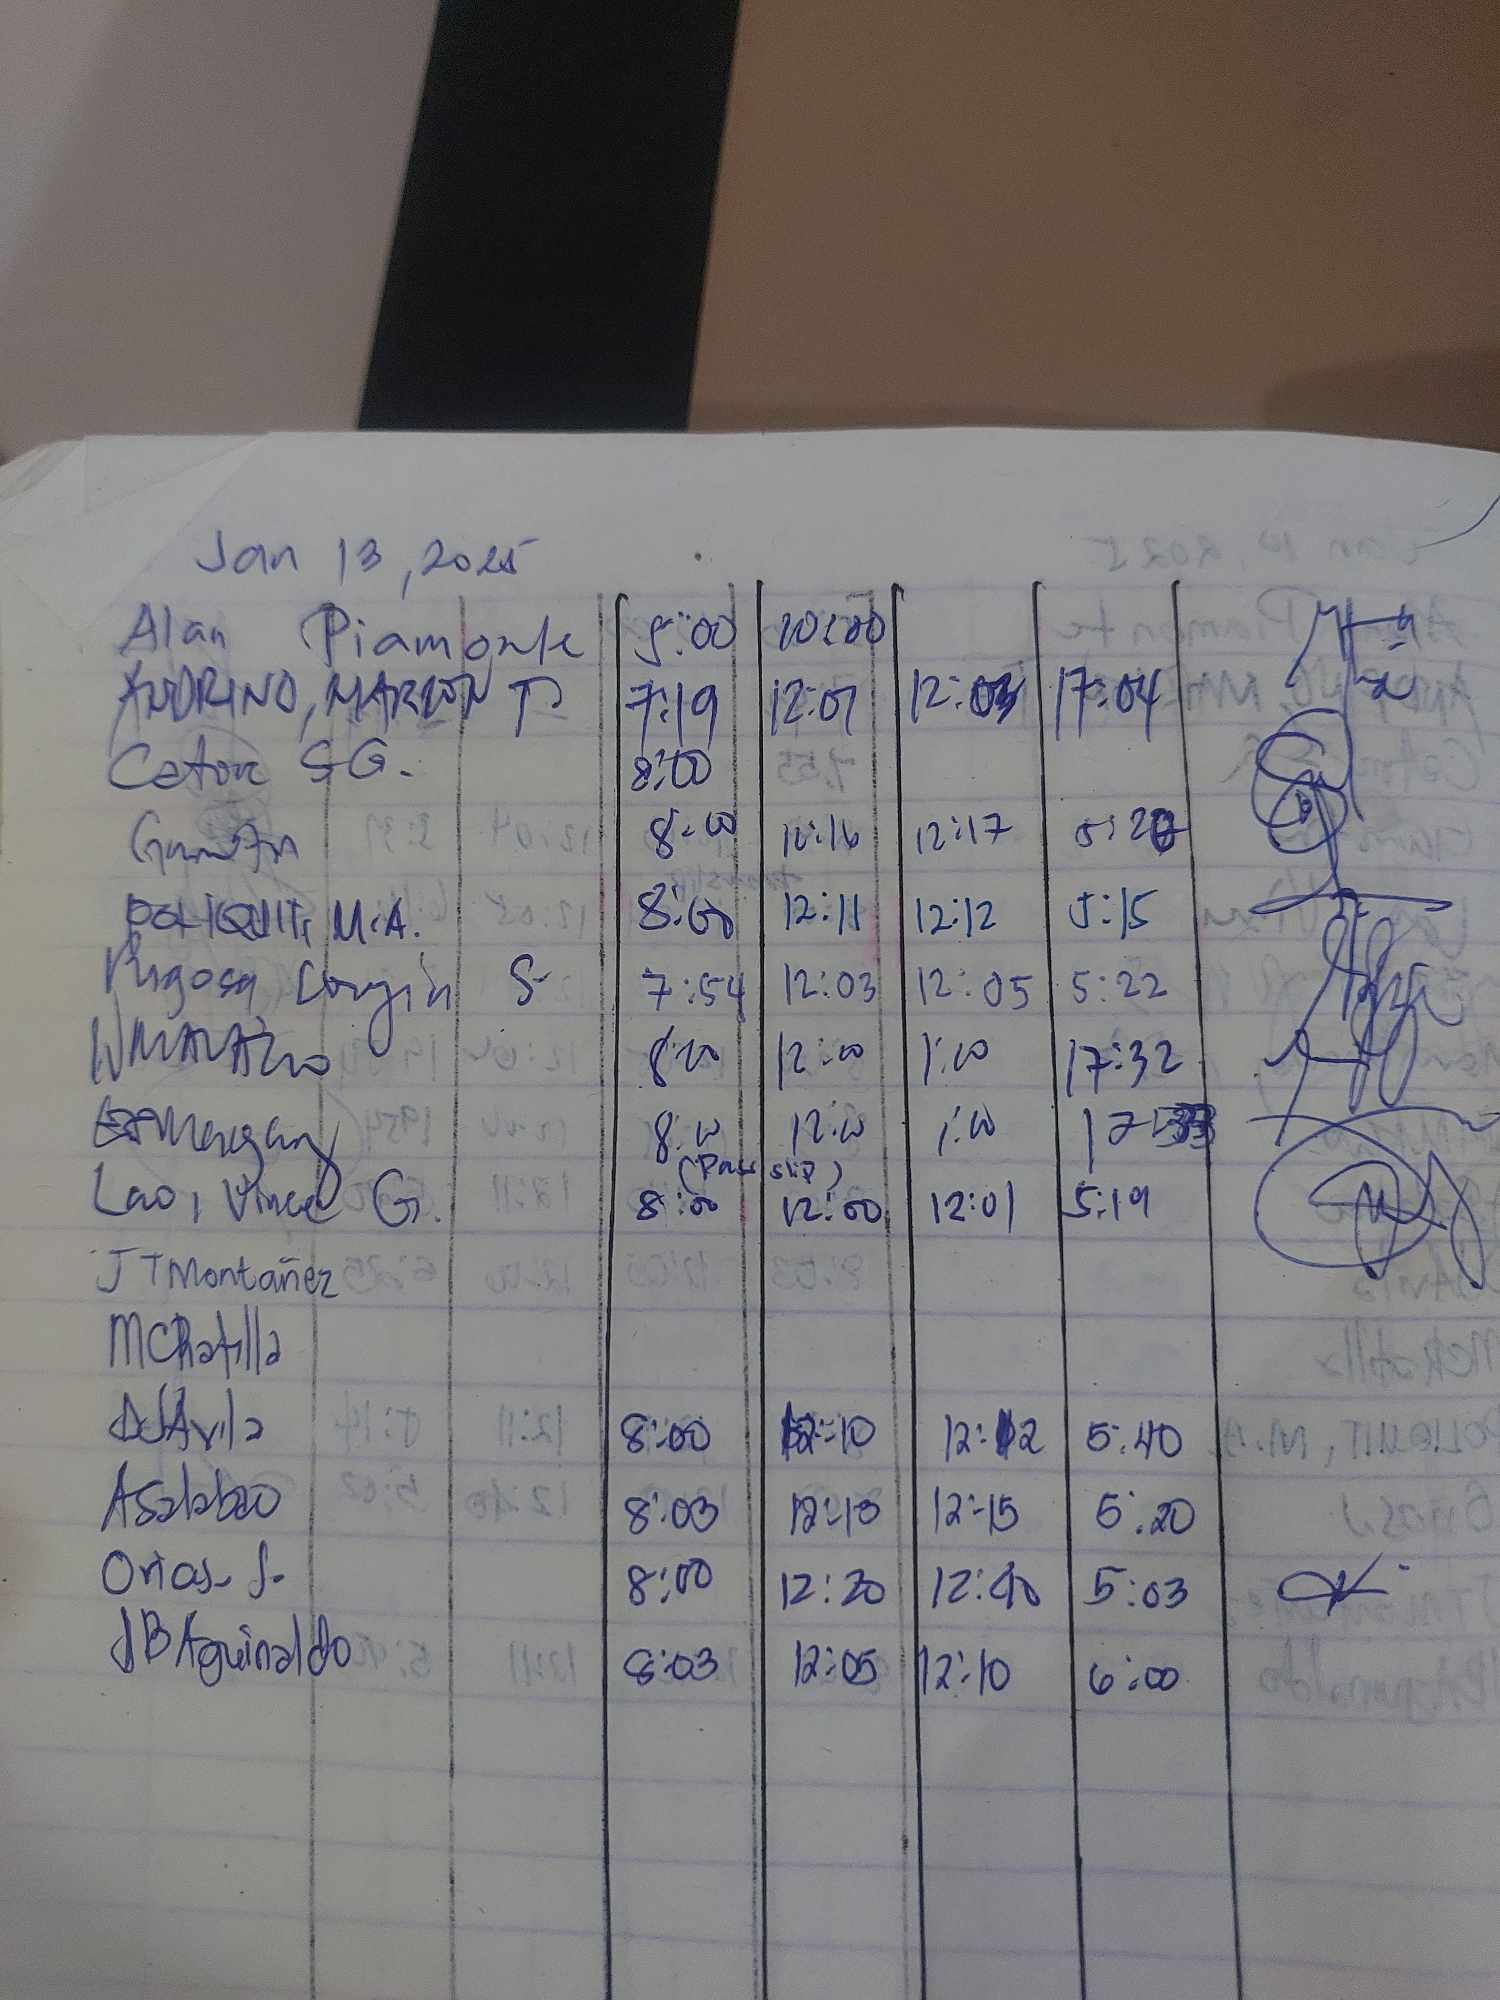 Jan 13, 2025
Alan Piamonte 8:00 20:00
ANDRINO, MARLON T. 7:19 12:01 12:03 17:04
Cetor S G. 8:00
8:00 12:16 12:17 5:20
POLIQUIT, M.A. 8:00 12:11 12:12 5:15
S 7:54 12:03 12:05 5:22
8:00 12:00 1:00 17:32
8:00 12:00 1:00 17:33
(Pass slip)
Lao, Vince G. 8:00 12:00 12:01 5:19
JTMontañez
MCRatilla
DJAvila 8:00 12:10 12:12 5:40
ASalabao 8:03 12:13 12:15 5:20
Orias J. 8:00 12:20 12:40 5:03
JBAguinaldo 8:03 12:05 12:10 6:00